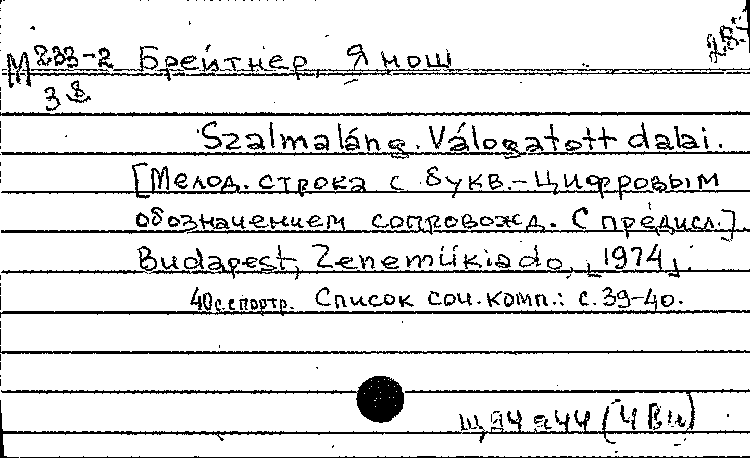 М 233-2 Брейтнер, Янош
3
Szalmaláng. Válogatott dalai.
[Мелод. строка с букв.-цифровым
обозначением сопровожд. С предисл.]
Budapest, Zeneműkiado, [1974].
40 с. с портр. Список соч. комп.: с. 39-40.